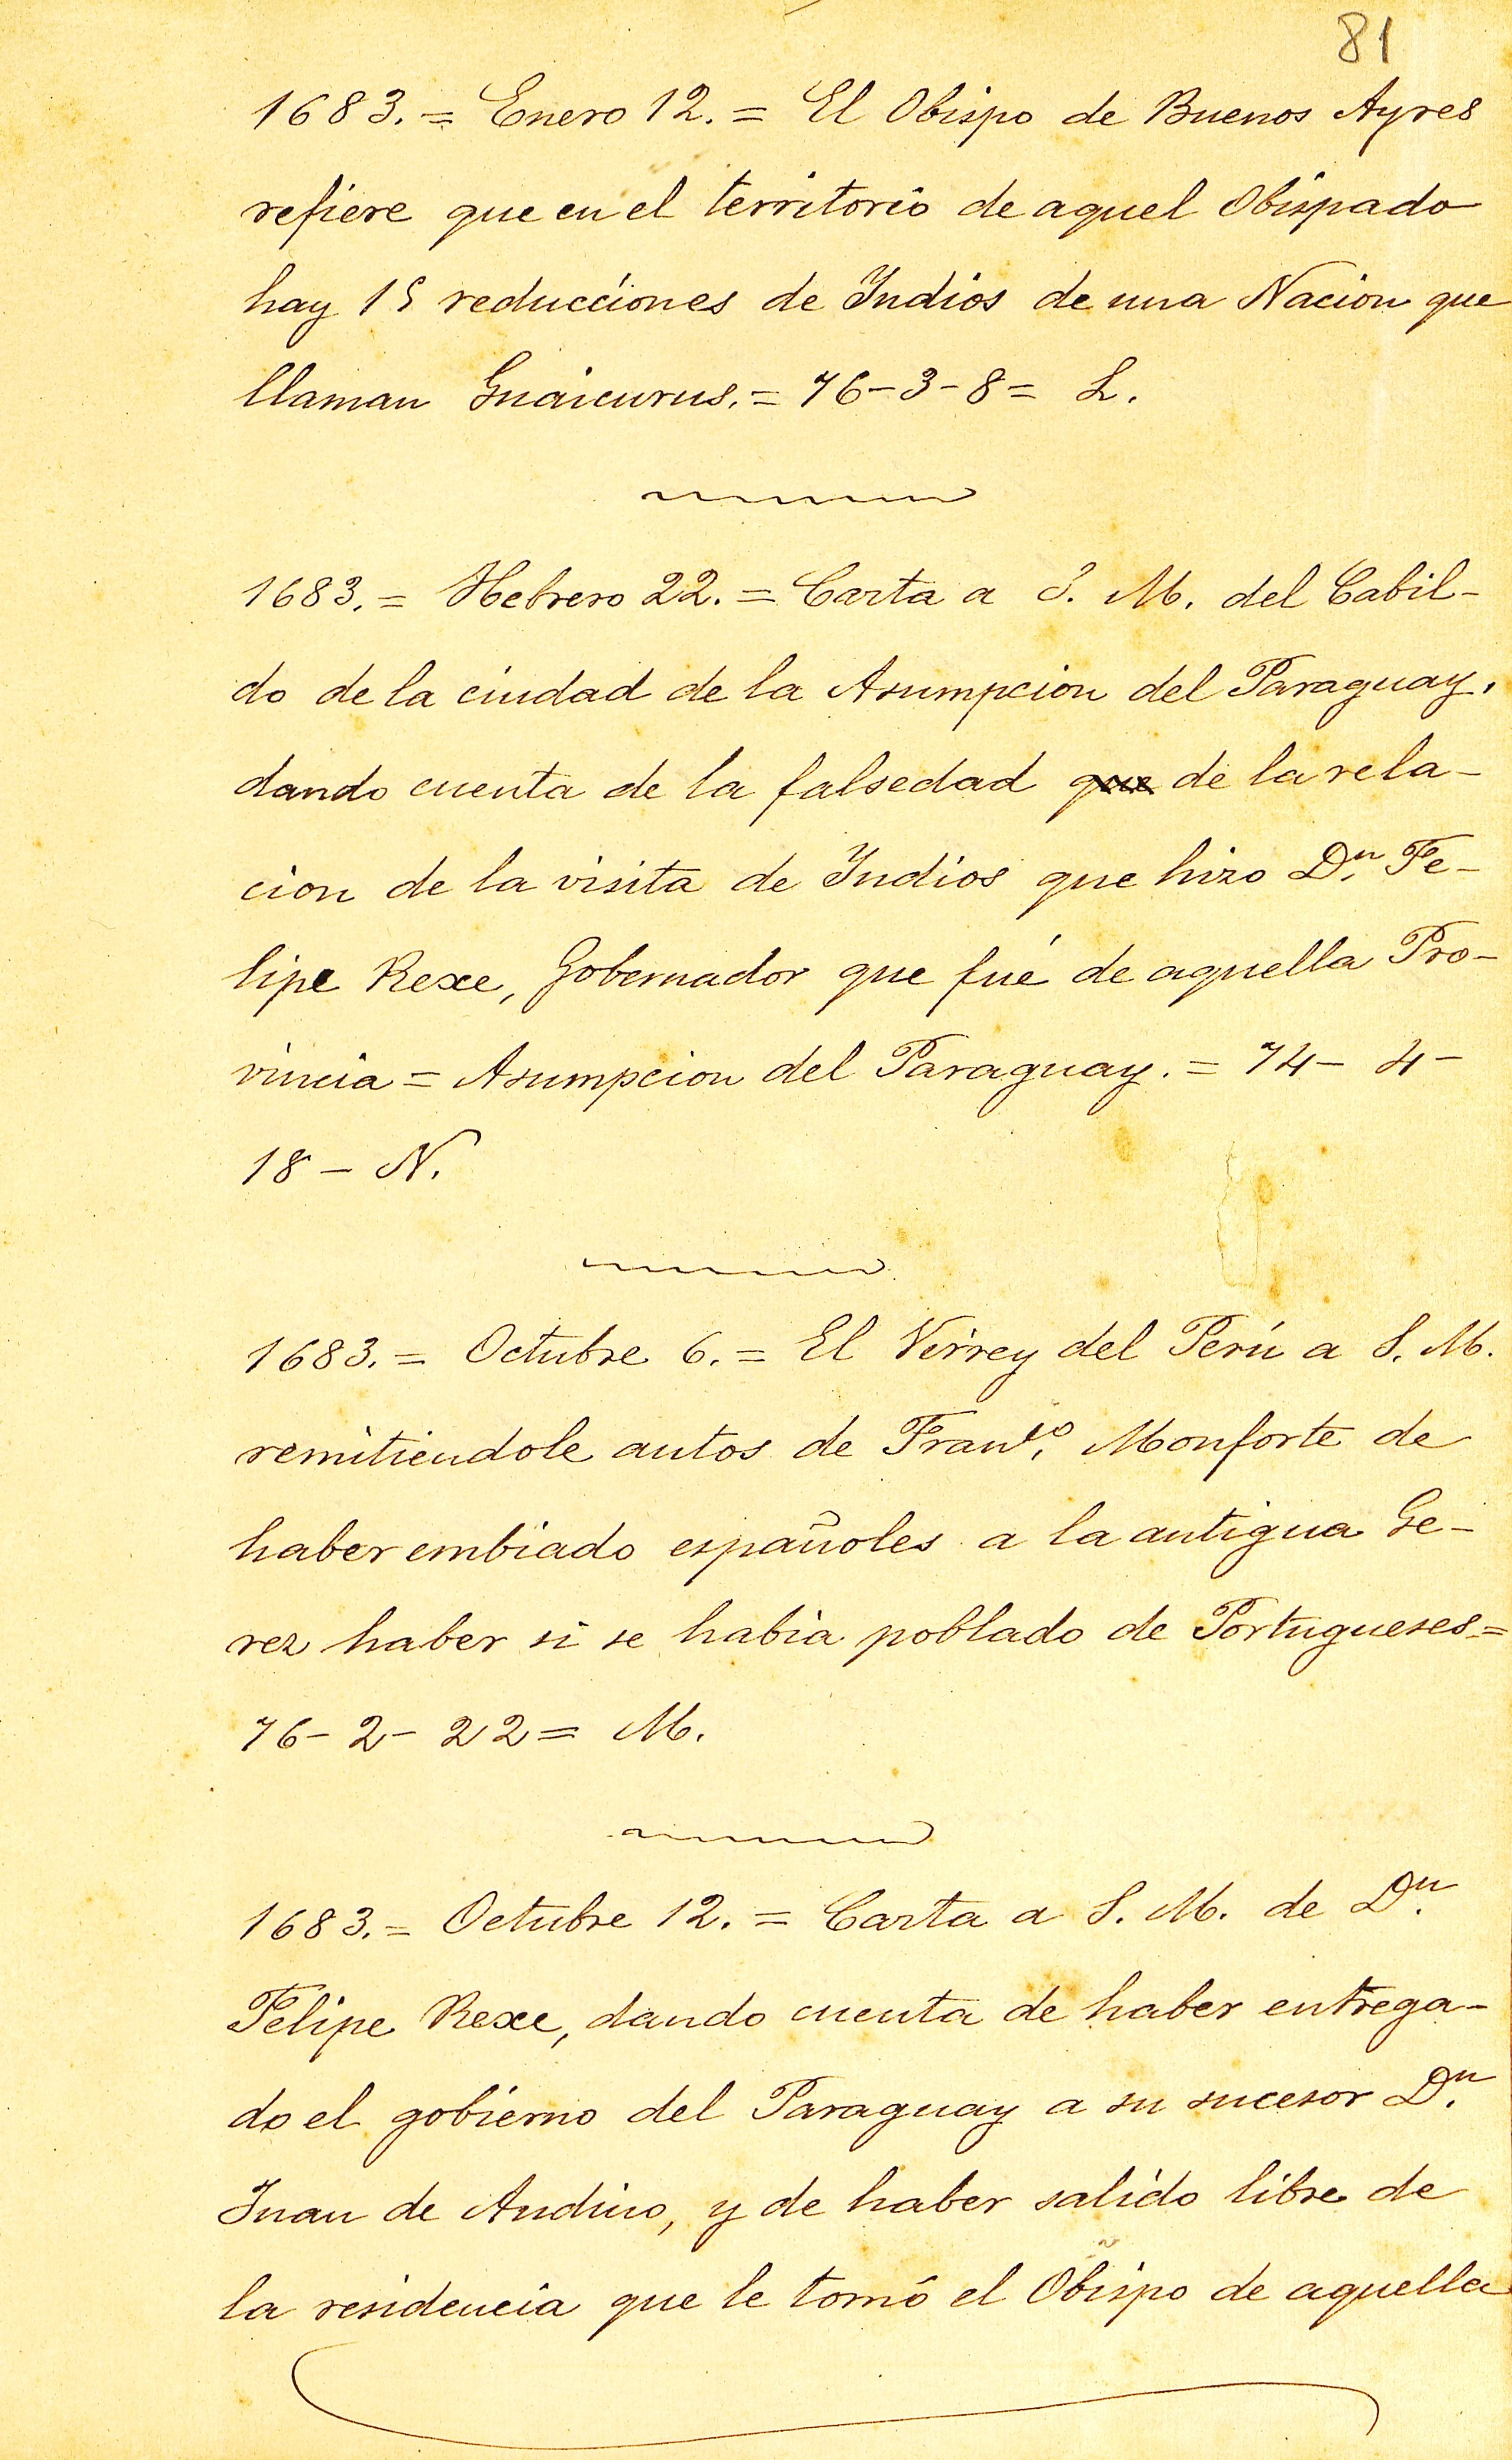 81
1683. = Enero 12. = El Obispo de Buenos Ayres
refiere que en el territorio de aquel Obispado
hay 15 reducciones de Indios de una Nacion que
llaman Guaicurus. = 76-3-8 = L.
1683. = Hebrero 22. = Carta a S. M. del Cabil-
do de la ciudad de la Asumpcion del Paraguay,
dando cuenta de la falsedad que de la rela-
cion de la visita de Indios que hizo D.n Fe-
lipe Rexe, Gobernador que fué de aquella Pro-
vincia = Asumpcion del Paraguay. = 74- 4-
18 - N.
1683. = Octubre 6. = El Virrey del Perú a S. M.
remitiendole autos de Fran.co Monforte de
haber embiado españoles a la antigua Ge-
rez haber si se habia poblado de Portugueses =
76- 2- 22 = M.
1683. = Octubre 12. = Carta a S. M. de D.n
Felipe Rexe, dando cuenta de haber entrega-
do el gobierno del Paraguay a su sucesor D.n
Juan de Andino, y de haber salido libre de
la residencia que le tomó el Obispo de aquella